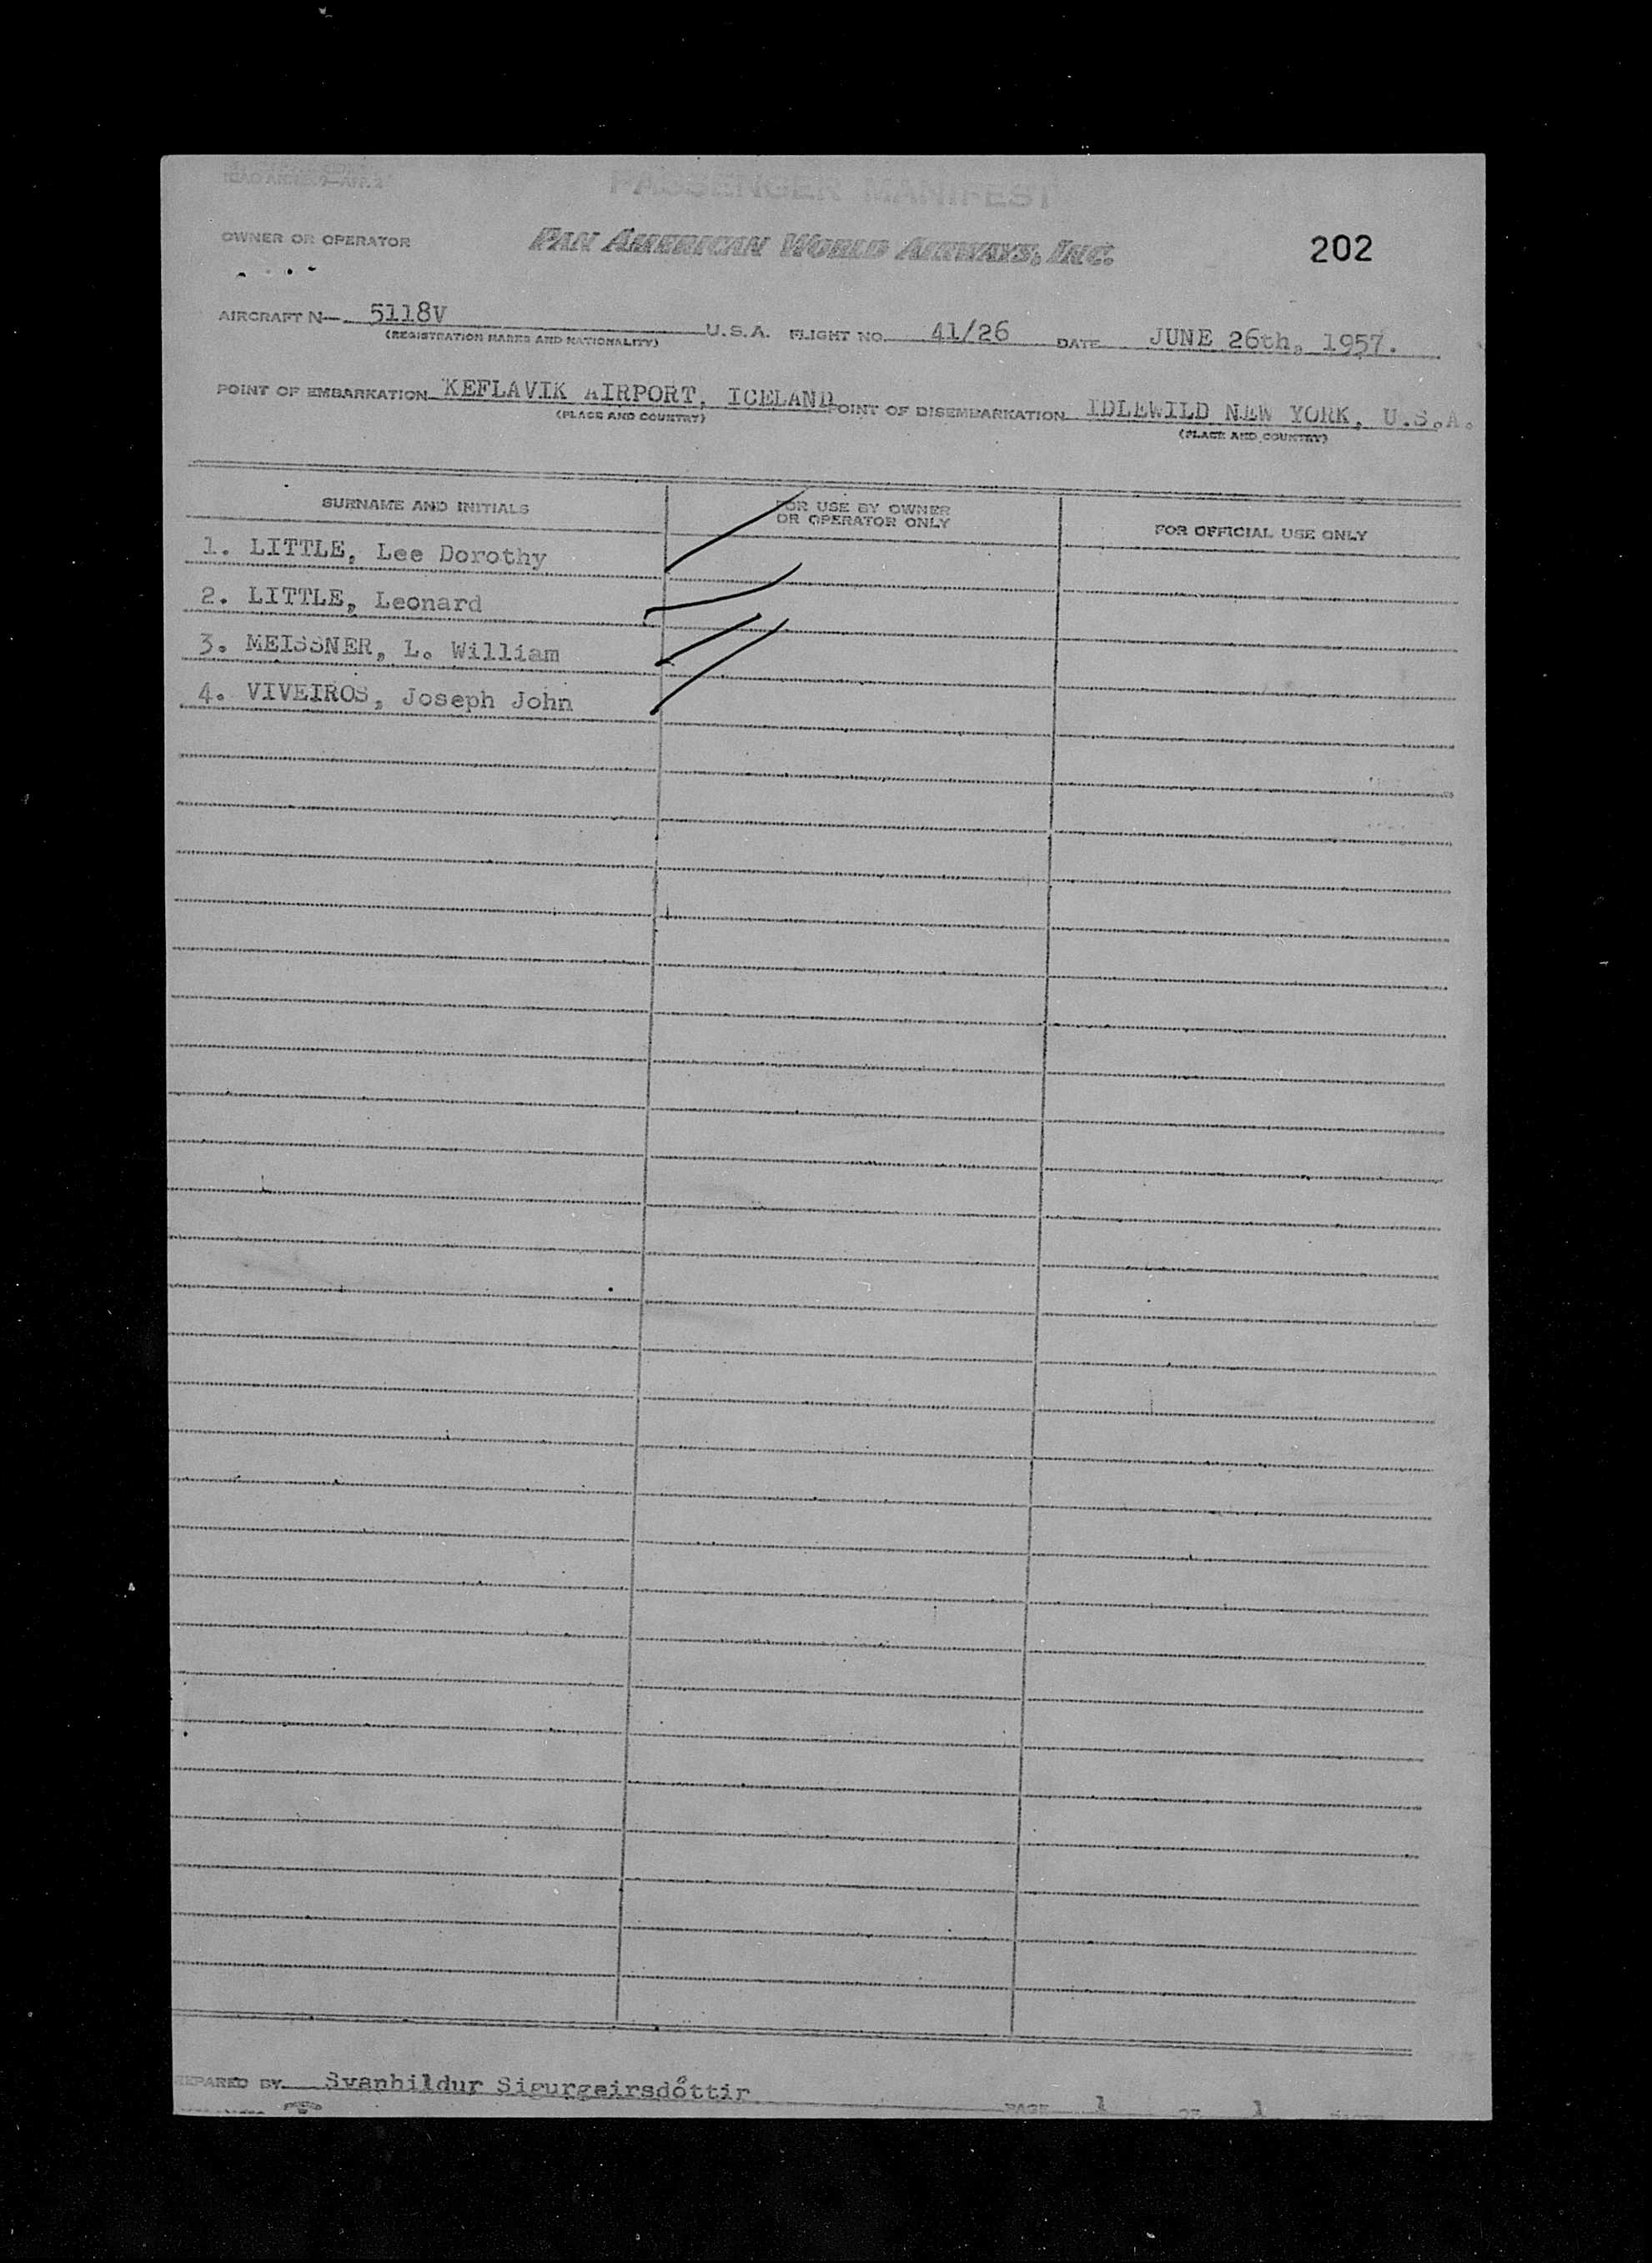 ICAO ANNEX 9—APP. 2
PASSENGER MANIFEST
OWNER OR OPERATOR PAN AMERICAN WORLD AIRWAYS, INC. 202
AIRCRAFT N— 5118V U.S.A. FLIGHT NO. 41/26 DATE JUNE 26th, 1957.
(REGISTRATION MARKS AND NATIONALITY)
POINT OF EMBARKATION KEFLAVIK AIRPORT, ICELAND POINT OF DISEMBARKATION IDLEWILD NEW YORK, U.S.A.
(PLACE AND COUNTRY) (PLACE AND COUNTRY)
SURNAME AND INITIALS FOR USE BY OWNER
OR OPERATOR ONLY FOR OFFICIAL USE ONLY
1. LITTLE, Lee Dorothy
2. LITTLE, Leonard
3. MEISSNER, L. William
4. VIVEIROS, Joseph John
REPARED BY Svanhildur Sigurgeirsdóttir PAGE 1 OF 1 PAGES